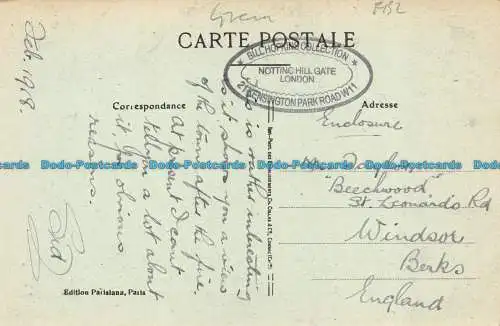 Green
F1S2
CARTE POSTALE
BILL HOPKINS COLLECTION
NOTTING HILL GATE
LONDON
21 KENSINGTON PARK ROAD W11
Feb. 1918.
Correspondance
Adresse
This is rather interesting
as it shows you a view
of the town after the fire.
At present I can't
tell you a lot about
it for obvious
reasons.
Sid
Enclosure
Mr Taylor
"Beechwood"
St. Leonards Rd
Windsor
Berks
England
Edition Parisiana, Paris
Dodo-Postcards Dodo-Postcards Dodo-Postcards Dodo-Postcards Dodo-Postcards